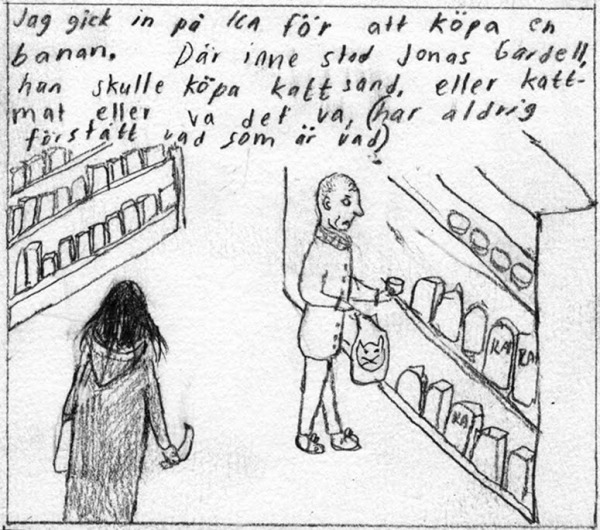 Jag gick in på ICA för att köpa en
banan. Där inne stod Jonas Gardell,
han skulle köpa kattsand, eller katt-
mat eller va det va, (har aldrig
förstått vad som är vad)
KA
KA
KA